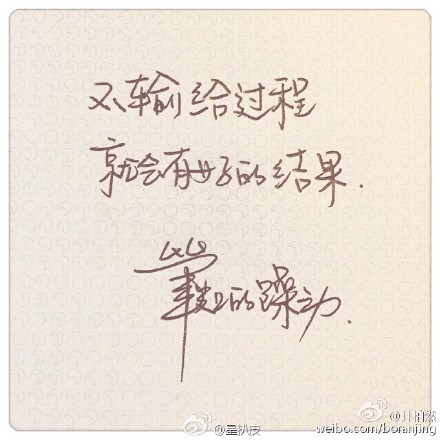 不输给过程
就会有好的结果.
的躁动.
@星扒皮
@井柏然
weibo.com/boranjing